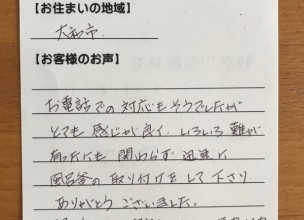 【お住まいの地域】
大和市
【お客様のお声】
お電話での対応もそうでしたが
とても感じが良く、いろいろ難が
有ったにも関わらず迅速に
風呂釜の取り付けをして下さり
ありがとうございました。